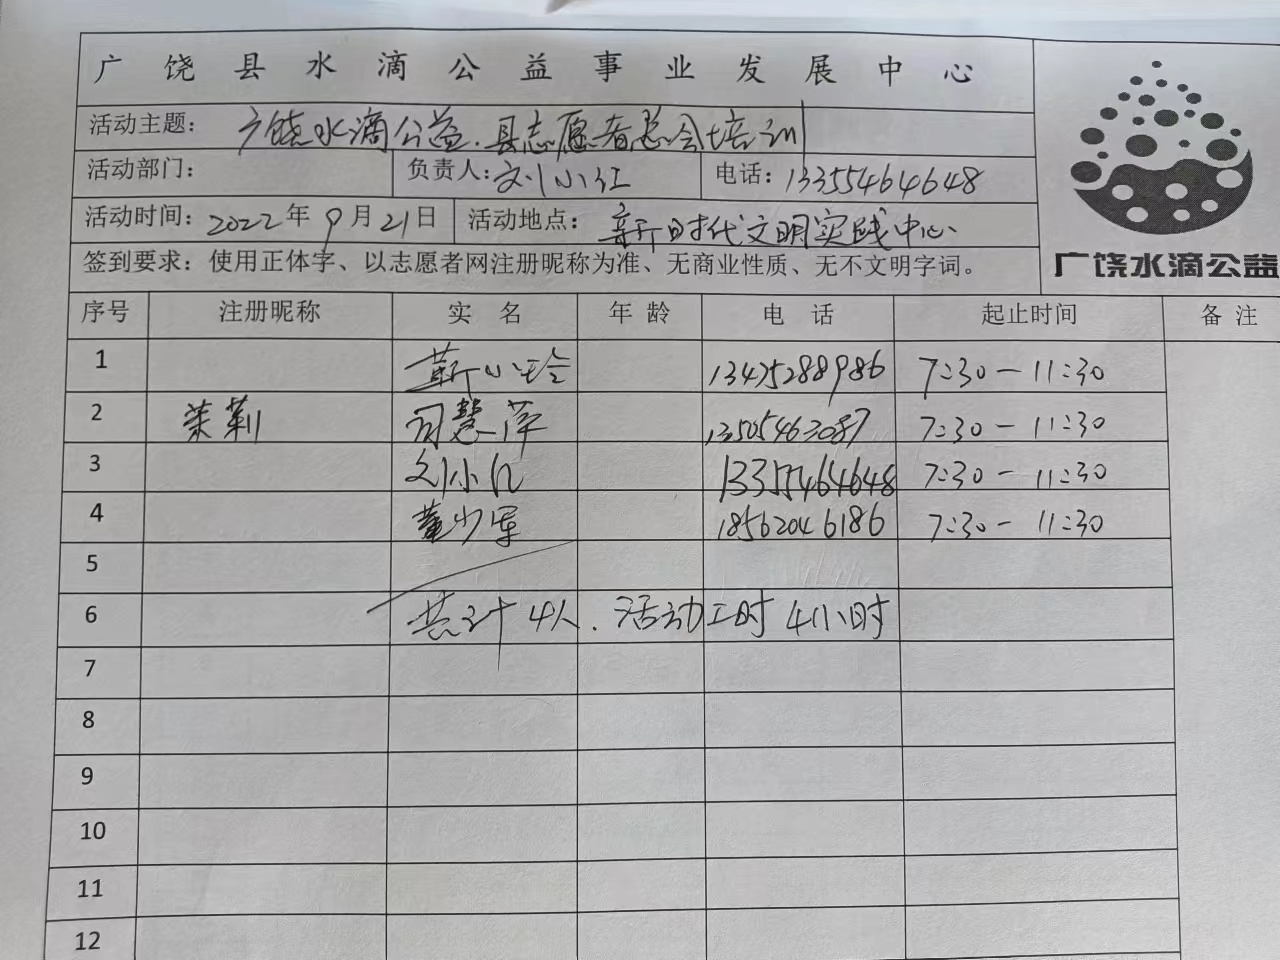 广饶县水滴公益事业发展中心
活动主题: 广饶水滴公益.县志愿者总会培训
活动部门: 负责人:刘小红 电话:13355464648
活动时间: 2022年9月21日 活动地点: 新时代文明实践中心
签到要求: 使用正体字、以志愿者网注册昵称为准、无商业性质、无不文明字词。
广饶水滴公益
序号 注册昵称 实名 年龄 电话 起止时间 备注
1 小玲 13475288986 7:30-11:30
2 茉莉 慧萍 13505463087 7:30-11:30
3 刘小红 13355464648 7:30-11:30
4 董少军 18562046186 7:30-11:30
5
6 共计4人.活动工时4小时
7
8
9
10
11
12